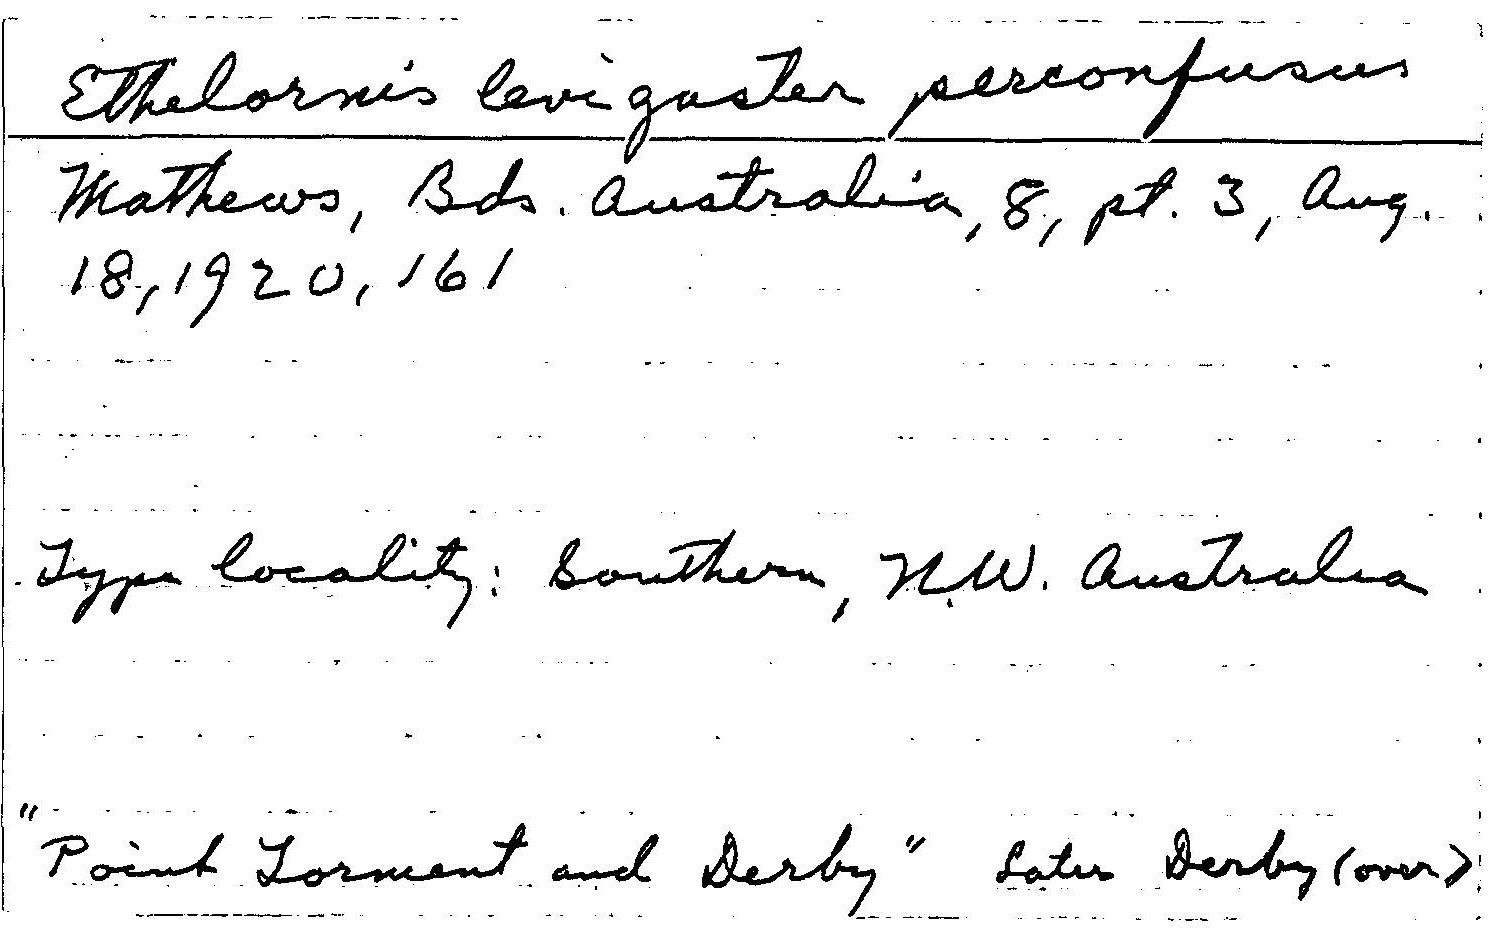 Ethelornis levigaster perconfusus
Mathews, Bds. Australia, 8, pt. 3, Aug.
18, 1920, 161
Type locality: Southern, N.W. Australia
"Point Torment and Derby" Later Derby (over)